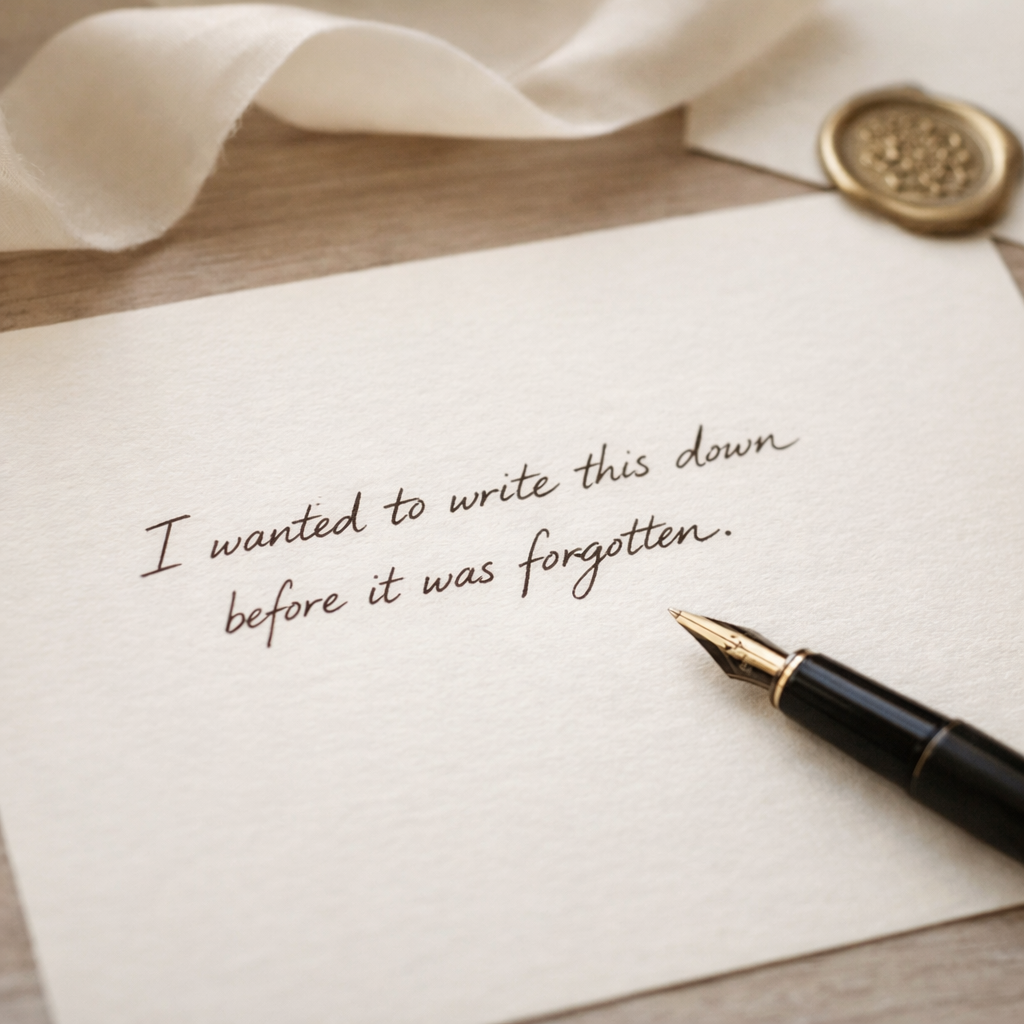 I wanted to write this down
before it was forgotten.